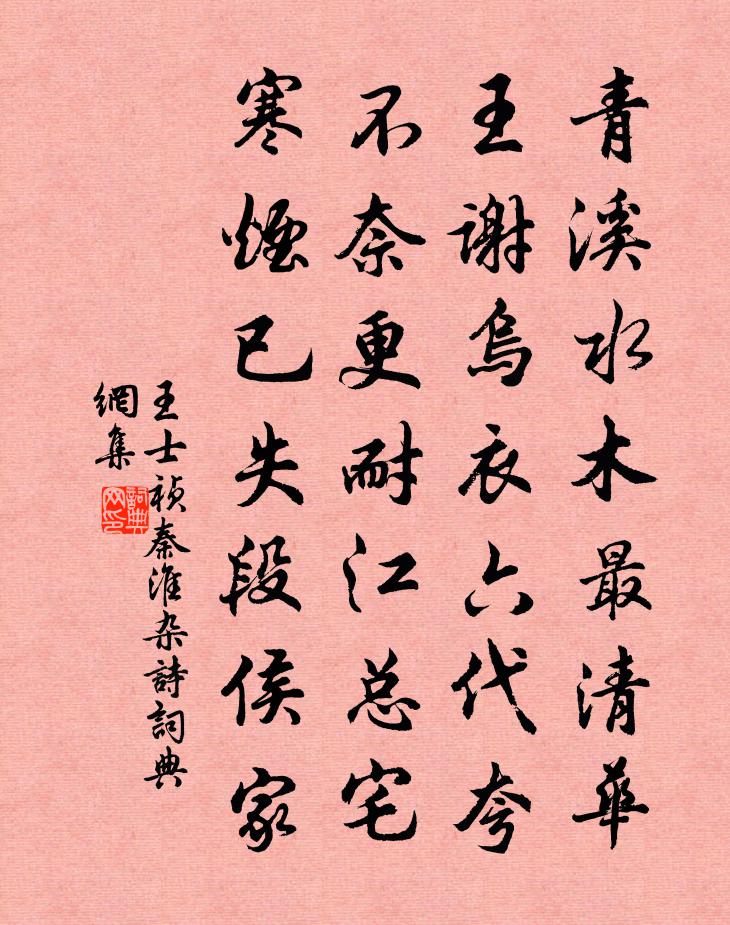 青溪水木最清華
王謝烏衣六代夸
不奈更耐江总宅
寒煙已失段侯家
王士祯秦淮杂詩詞典
網集
詞典网印